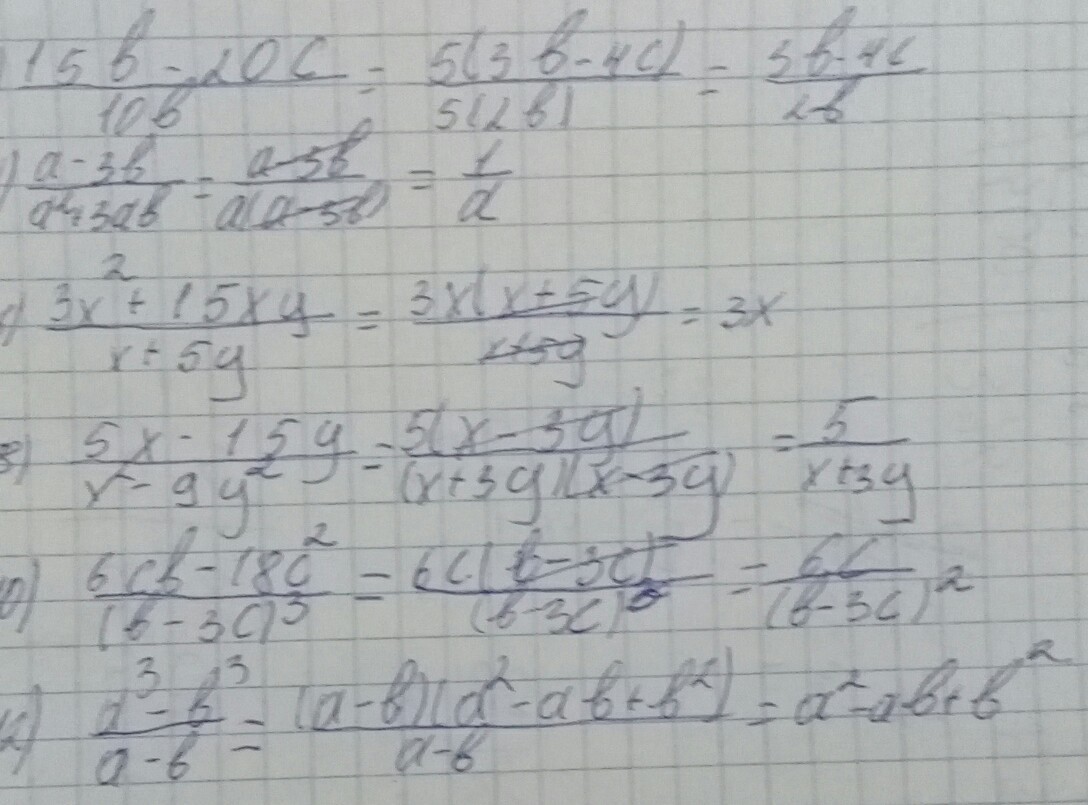 ) (15b - 20c)/(10b) = (5(3b - 4c))/(5(2b)) = (3b - 4c)/(2b)
) (a - 3b)/(a² - 3ab) = (a - 3b)/(a(a - 3b)) = 1/a
) (3x² + 15xy)/(x + 5y) = (3x(x + 5y))/(x + 5y) = 3x
з) (5x - 15y)/(x² - 9y²) = (5(x - 3y))/((x + 3y)(x - 3y)) = 5/(x + 3y)
) (6cb - 18c²)/((b - 3c)³) = (6c(b - 3c))/((b - 3c)³) = (6c)/((b - 3c)²)
) (a³ - b³)/(a - b) = ((a - b)(a² - ab + b²))/(a - b) = a² - ab + b²